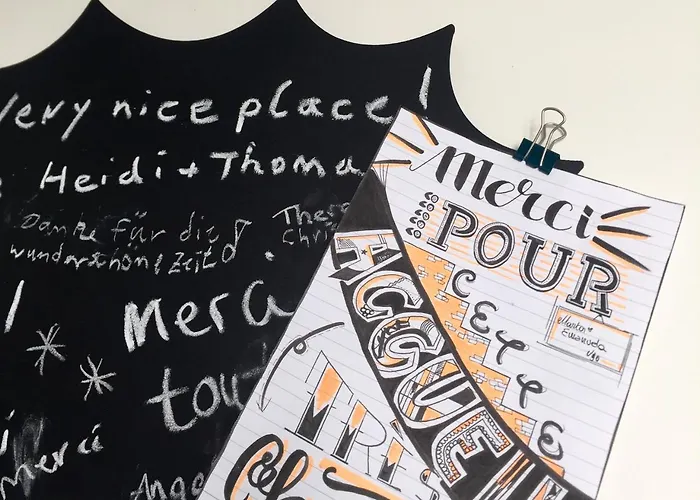 very nice place!
Heidi + Thoma
Danke für die
wunderschöne Zeit
The
Chri
Merc
tou
merci
Ange
Merci
POUR
CETTE
ACCUEI
TRÈS
Marta
Emanuela
Ugo